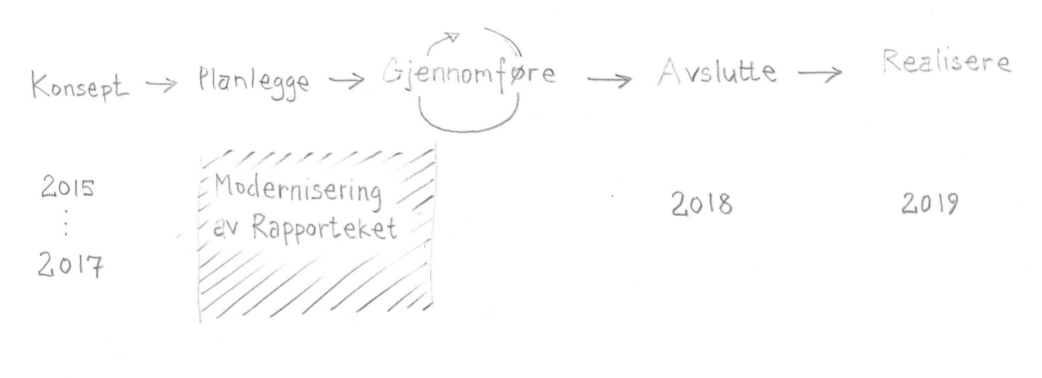 Konsept → Planlegge → Gjennomføre → Avslutte → Realisere
2015
⋮
2017
Modernisering
av Rapporteket
2018
2019